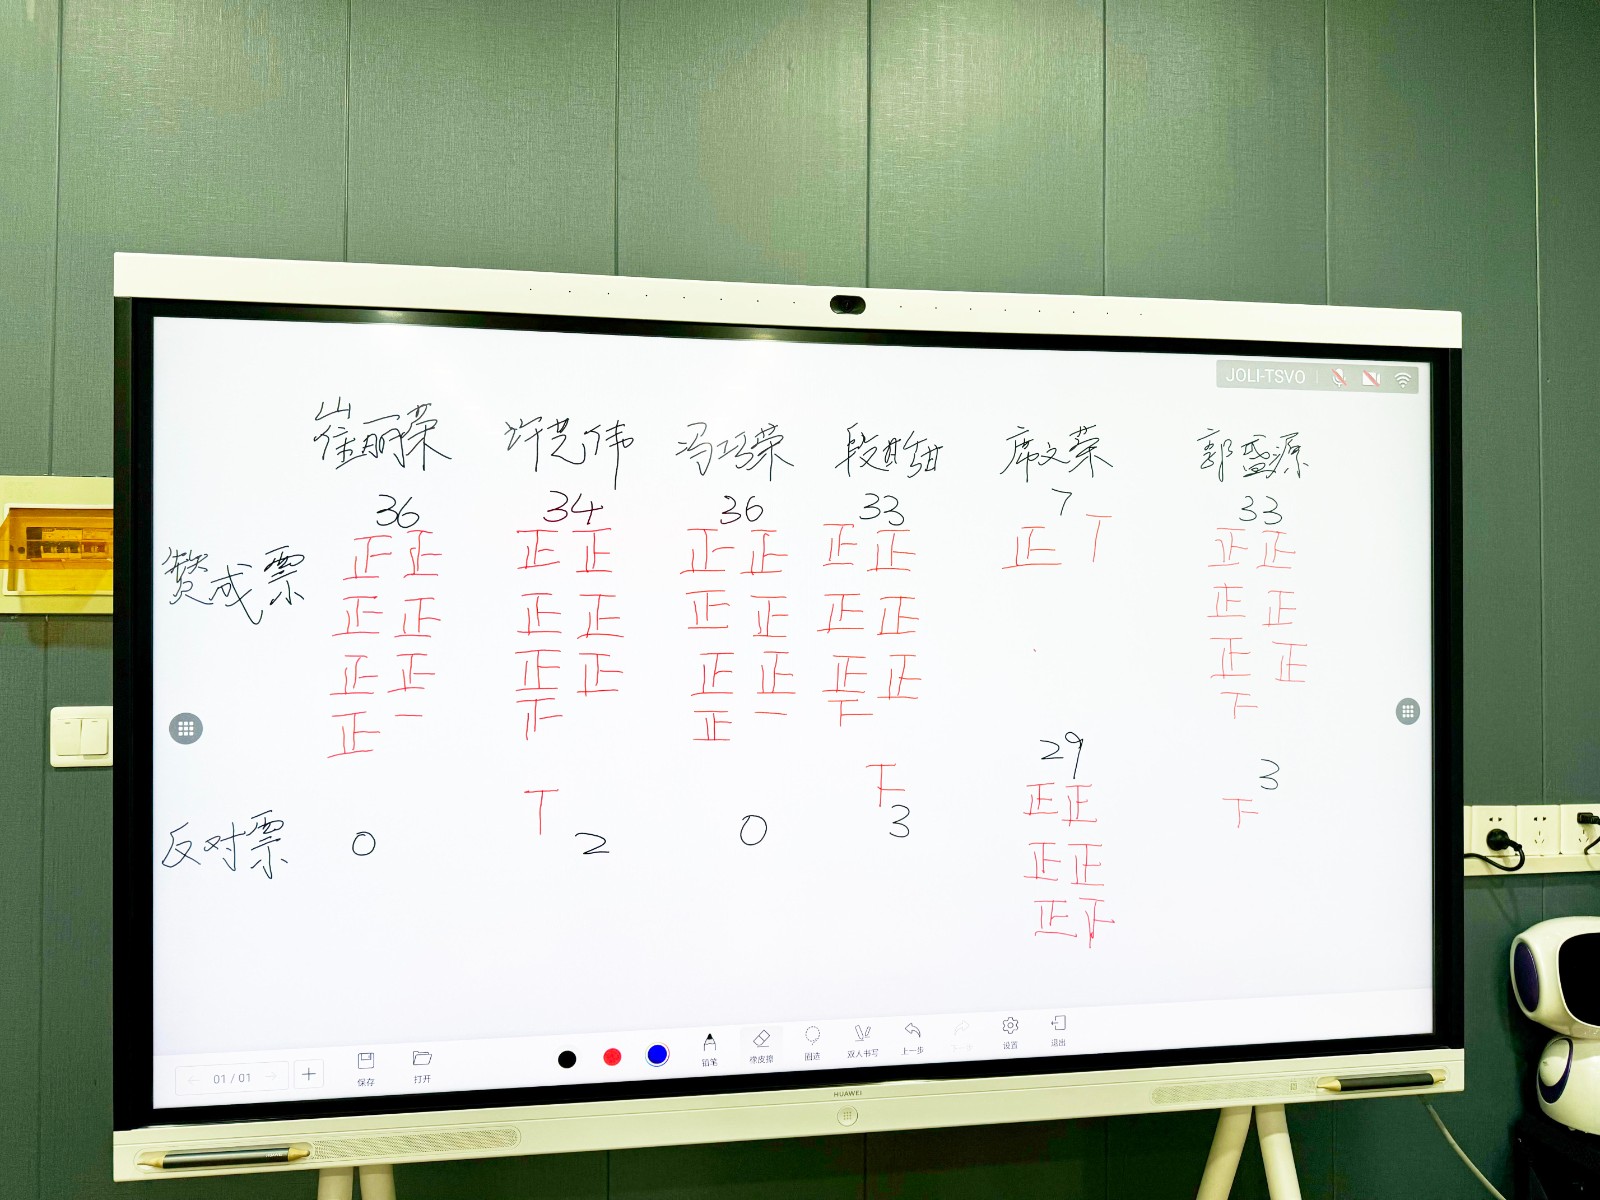 JOLI-TSVO
崔丽荣 许艺伟 冯巧荣 段盼甜 席文荣 郭盛源
36 34 36 33 7 33
赞成票 正正 正正 正正 正正 正 丅 正正
正正 正正 正正 正正 正正
正正 正正 正正 正正 正正
正一 正 正一 下 下
29
反对票 0 丅 2 0 下 3 正正 下 3
正正
正正
01 / 01
保存 打开 铅笔 橡皮擦 圈选 双人书写 上一步 设置 退出
HUAWEI